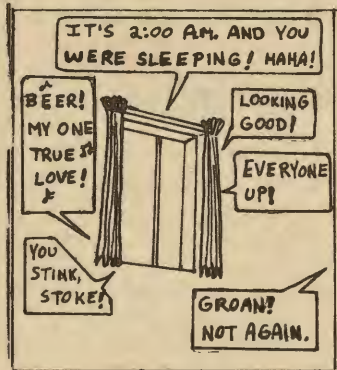 IT'S 2:00 A.M. AND YOU
WERE SLEEPING! HAHA!
BEER!
MY ONE
TRUE
LOVE!
LOOKING
GOOD!
EVERYONE
UP!
YOU
STINK,
STOKE!
GROAN!
NOT AGAIN.